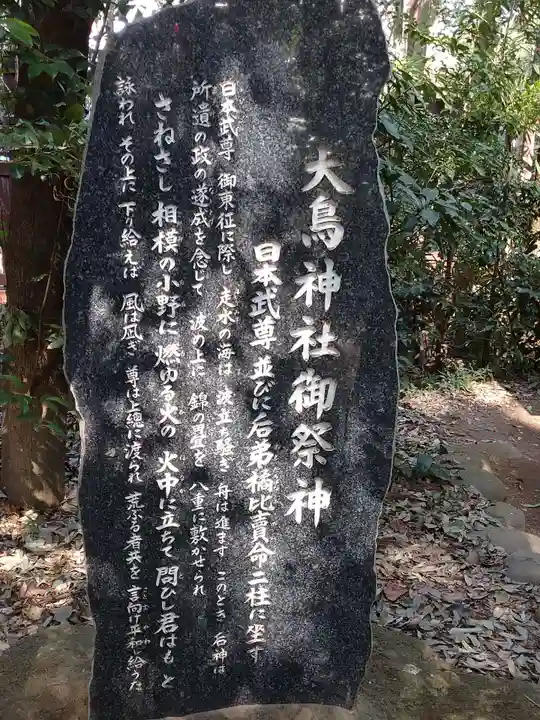 大鳥神社御祭神
日本武尊 並びに后弟橘比賣命 二柱に坐す
日本武尊 御東征に際し 走水の海は 波立ち騒ぎ 舟は進まず このとき 后神は
所遣の政の遂成を念じて 波の上に 錦の畳を 八重に敷かせられ
さねさし 相模の小野に 燃ゆる火の 火中に立ちて 問ひし君はも と
詠われ その上に 下り給えば 風は凪ぎ 尊は上總に渡られ 荒ぶる者共を 言向け平和し給うた